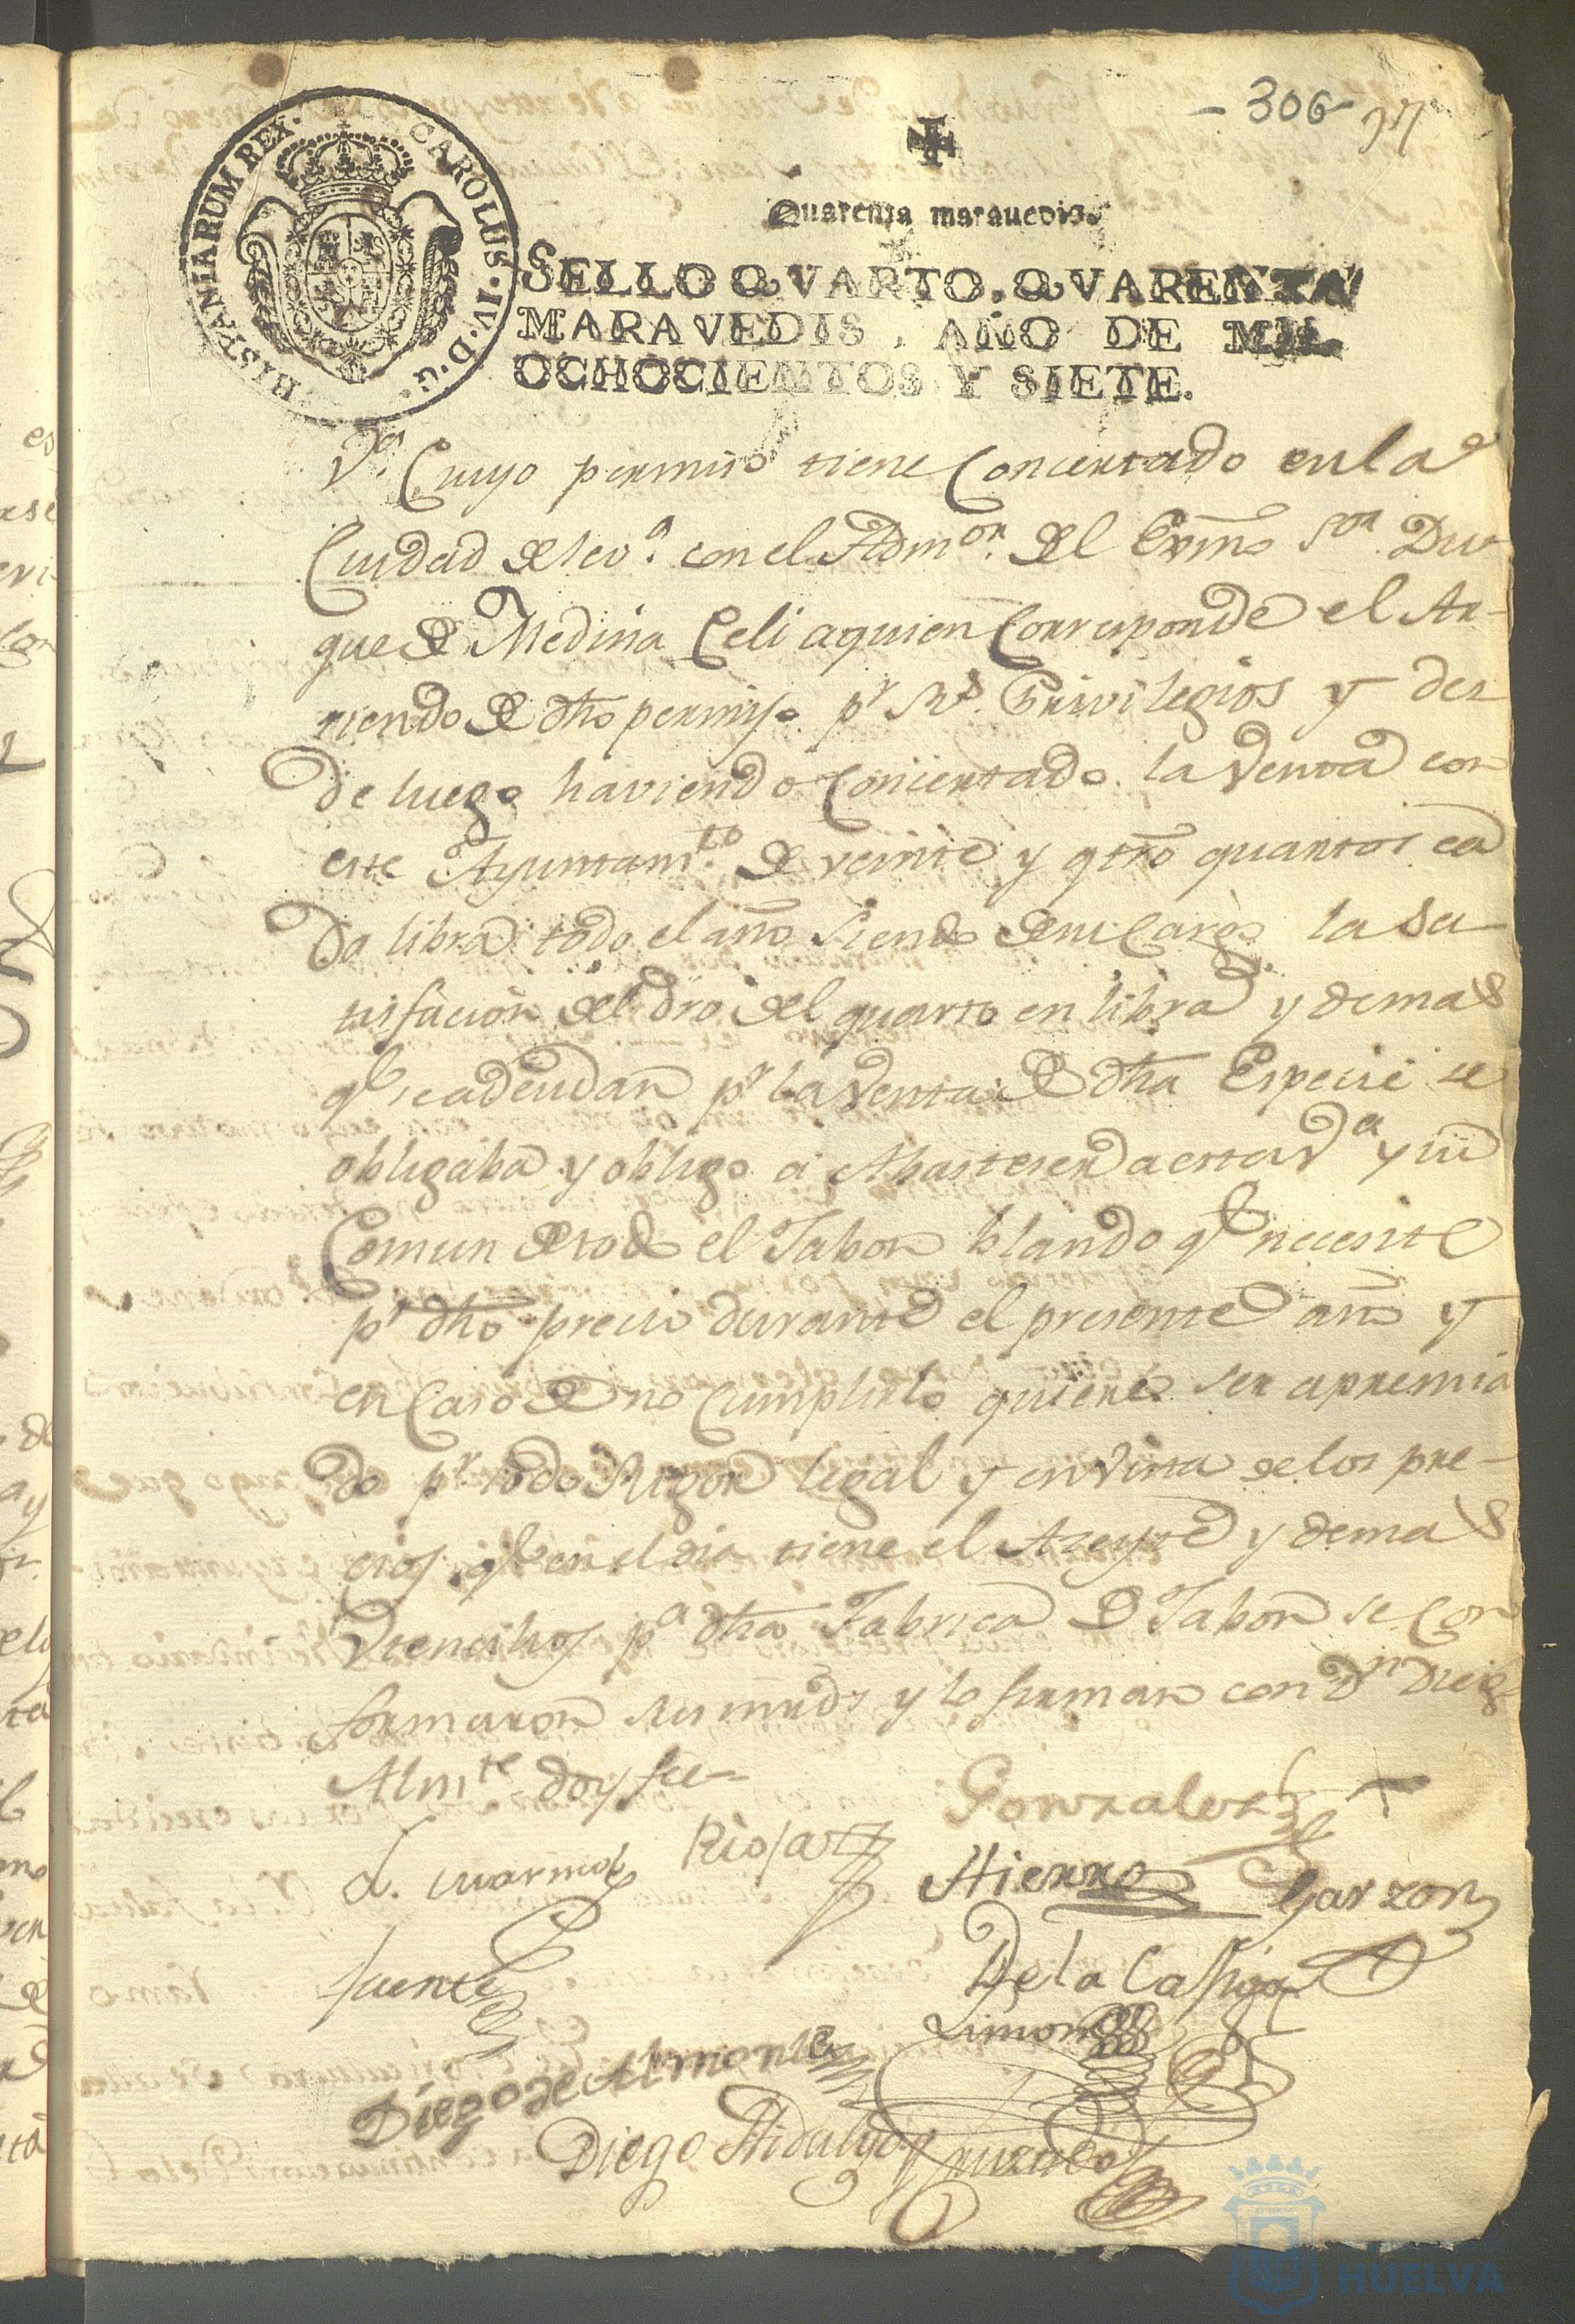 - 306 - 97
HISPANIARUM REX. CAROLUS. IV. D. G.
Quarenta marauedis.
SELLO QVARTO, QVARENTA
MARAVEDIS, AÑO DE MIL
OCHOCIENTOS Y SIETE.
Vª. Cuyo permiso tiene Concertado en la
Ciudad de Sevª. con el Admºʳ. del Exmo Sºʳ. Du-
que de Medina Celi a quien Corresponde el Ar-
riendo de dho permiso pʳ Rˢ. Privilegios y des
de luego haviendo Concertado la Venta con
este Ayuntamᵗᵒ. de veinte y qtro quartos ca
da libra todo el año siendo de su Cargo la Sa
tisfacion del dro del quarto en libra y demas
q̄ se adeudan pʳ la Venta de dha Especie se
obligaba y obligo a Abastecer a esta Vª y su
Comun de todo el Jabon blando q̄ necesite
pʳ dho precio durante el presente año y
en Caso de no Cumplirlo quiere ser apremia
do pʳ todo Rigor legal y en Vista de los pre-
cios q̄ en el dia tiene el Azeyte y demas
Vtencilios pª dha Fabrica de Jabon se Con
formaron sus mrds y lo firman con Dⁿ Diego
Almᵗᵉ doy fee-
Gonzalez
Riojar
Hierro
Garzon
Fuentes
De la Cassiga
Limon
Diego de Almonte
Diego Hidalgo y
HUELVA